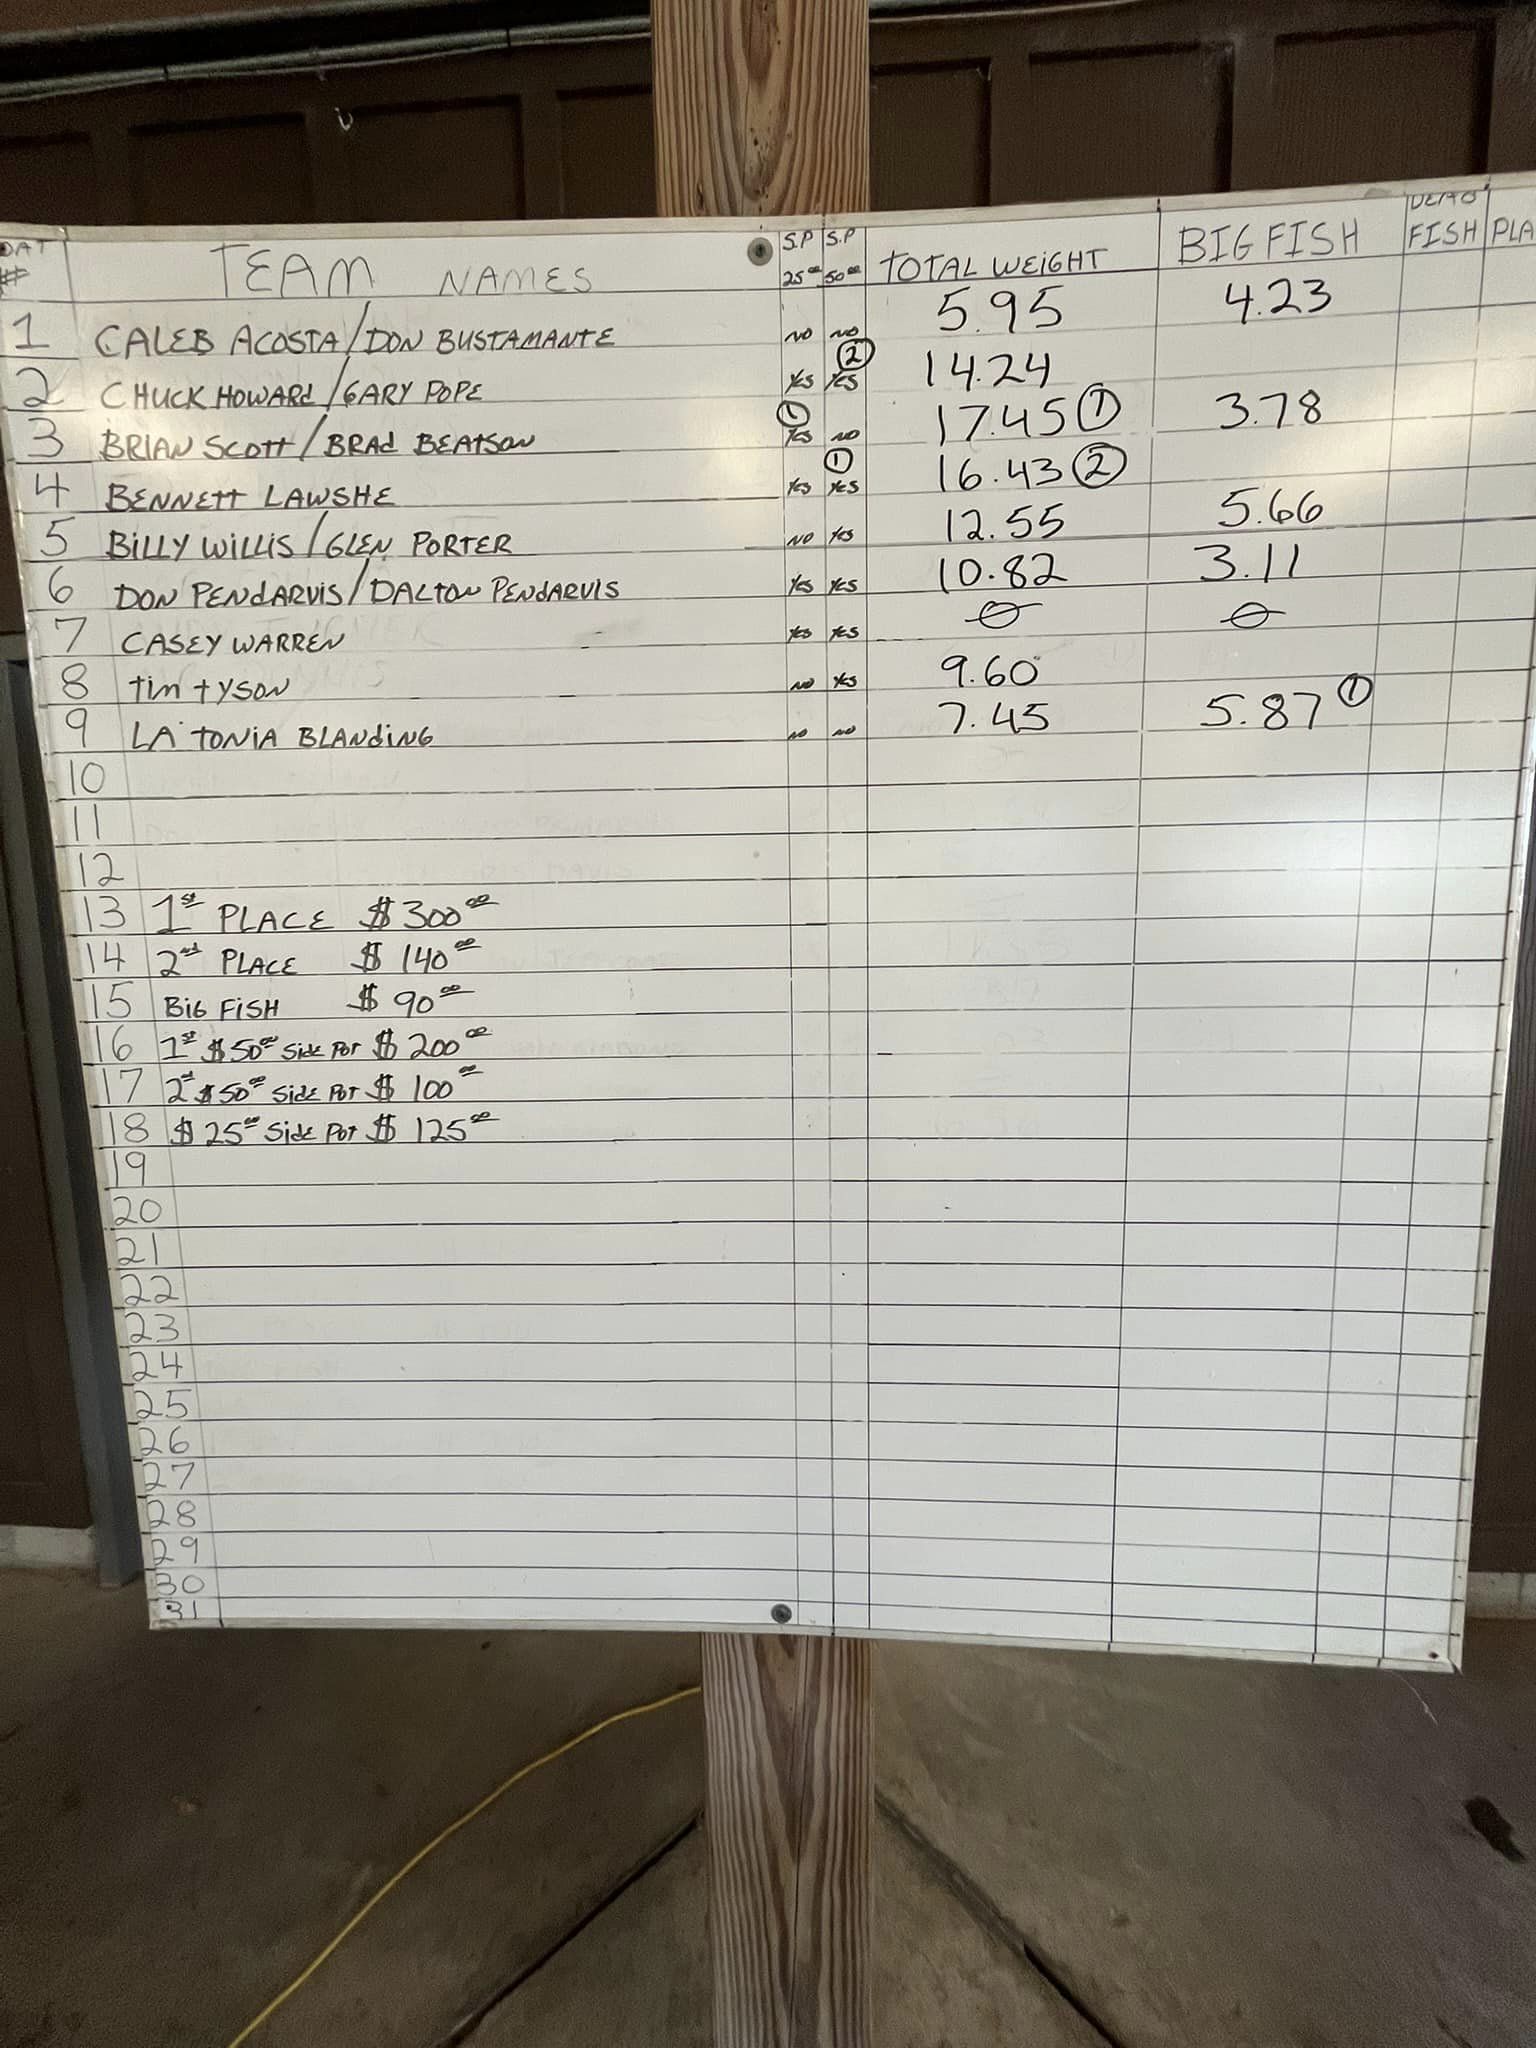 TEAM NAMES S.P 25⁰⁰ S.P 50⁰⁰ TOTAL WEIGHT BIG FISH FISH PLA
1 CALEB ACOSTA/DON BUSTAMANTE NO NO 5.95 4.23
2 CHUCK HOWARD/GARY POPE YES YES ② 14.24
3 BRIAN SCOTT/BRAD BEATSON ① YES NO 17.45 ① 3.78
4 BENNETT LAWSHE YES YES ① 16.43 ②
5 BILLY WILLIS/GLEN PORTER NO YES 12.55 5.66
6 DON PENDARVIS/DALTON PENDARVIS YES YES 10.82 3.11
7 CASEY WARREN YES YES 0 0
8 TIM TYSON NO YES 9.60
9 LA'TONIA BLANDING NO NO 7.45 5.87 ①
10
11
12
13 1st PLACE $300⁰⁰
14 2nd PLACE $140⁰⁰
15 BIG FISH $90⁰⁰
16 1st $50⁰⁰ SIDE POT $200⁰⁰
17 2nd $50⁰⁰ SIDE POT $100⁰⁰
18 $25⁰⁰ SIDE POT $125⁰⁰
19
20
21
22
23
24
25
26
27
28
29
30
31